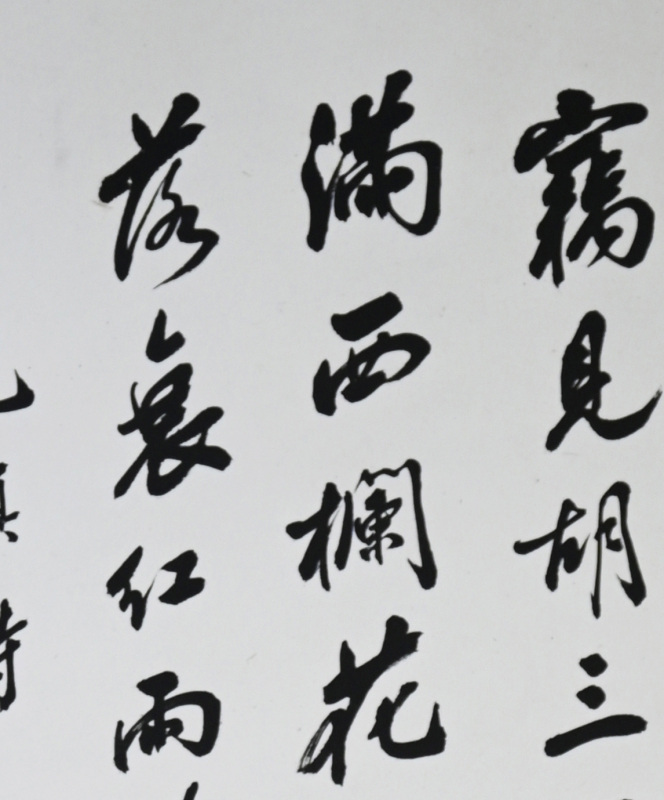 竊見胡三
滿西欄花
落衰紅雨